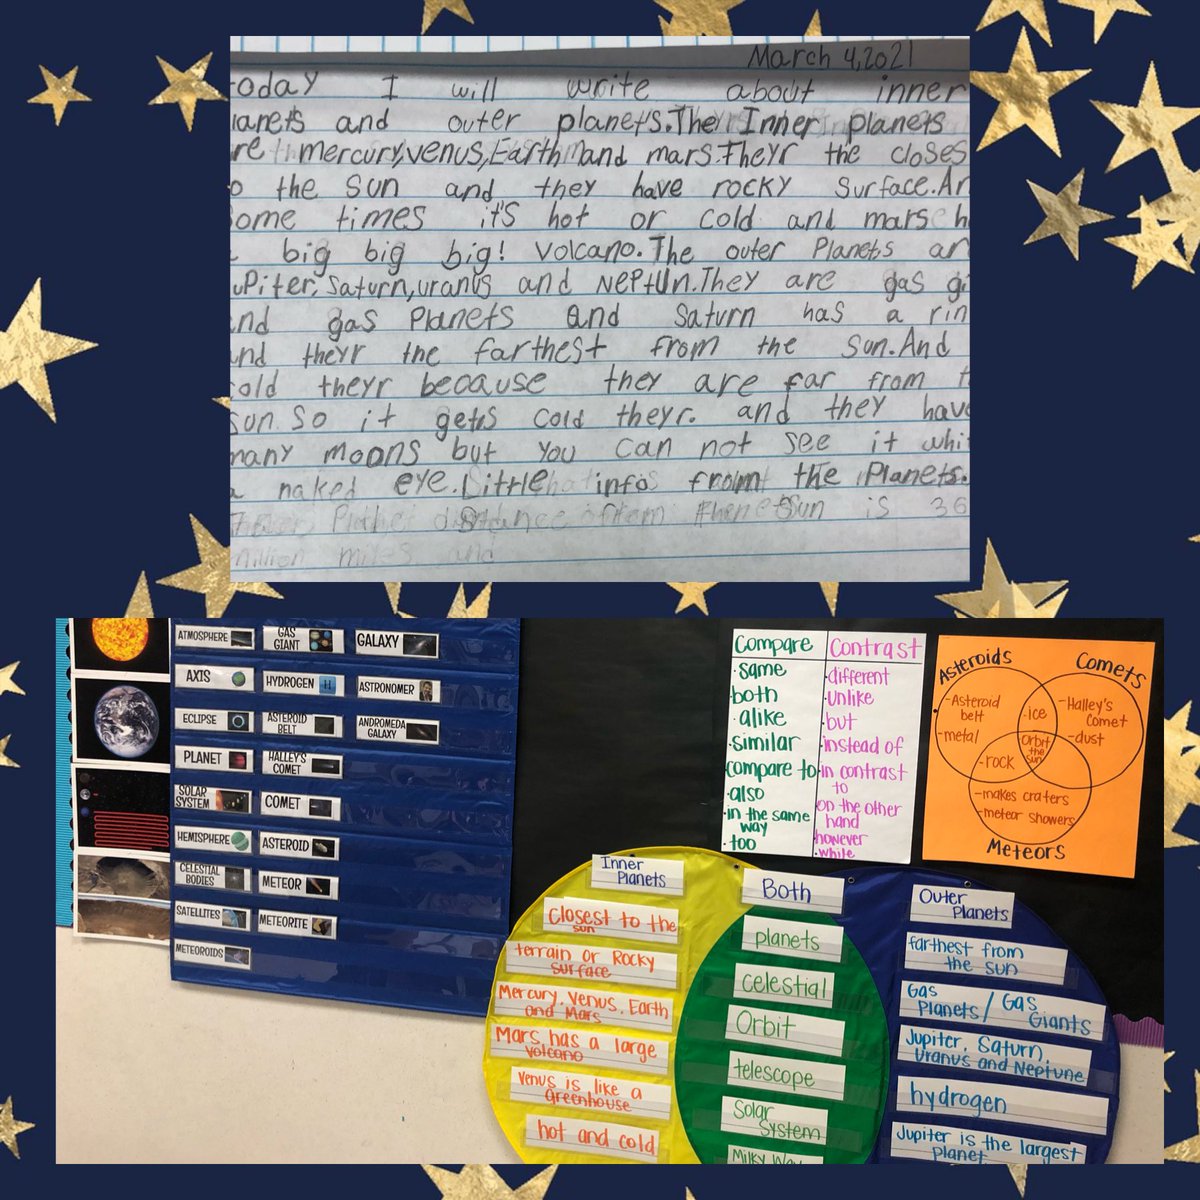 March 4,2021
oday I will write about inner
lanets and outer planets.The Inner planets
re mercury,venus,Earth and mars.Theyr the closes
o the sun and they have rocky surface.An
ome times it's hot or cold and mars h
big big big! volcano.The outer Planets ar
uPiter,saturn,uranus and NePtUn.They are gas gi
nd gas Planets and saturn has a rin
nd theyr the farthest from the sun.And
old theyr because they are far from t
sun.So it gets cold theyr. and they have
many moons but you can not see it whi
a naked eye.Little info from the Planets.
distance Sun is 36
million miles and
ATMOSPHERE
GAS GIANT
GALAXY
AXIS
HYDROGEN
ASTRONOMER
ECLIPSE
ASTEROID BELT
ANDROMEDA GALAXY
PLANET
HALLEY'S COMET
SOLAR SYSTEM
COMET
HEMISPHERE
ASTEROID
CELESTIAL BODIES
METEOR
SATELLITES
METEORITE
METEOROIDS
Compare
·same
·both
·alike
·similar
·compare to
·also
·in the same
way
·too
Contrast
·different
·unlike
·but
·instead of
·in contrast
to
·on the other
hand
·however
·while
Asteroids
-Asteroid
belt
-metal
Comets
-Halley's
Comet
-dust
·ice
Orbit
the
sun
-rock
-makes craters
-meteor showers
Meteors
Inner
Planets
Closest to the
sun
terrain or Rocky
surface
Mercury, Venus, Earth
and Mars
Mars has a large
volcano
Venus is like a
greenhouse
hot and cold
Both
planets
celestial
Orbit
telescope
Solar
System
Milky Way
Outer
Planets
farthest from
the sun
Gas
Planets / Gas
Giants
Jupiter, Saturn,
Uranus and Neptune
hydrogen
Jupiter is the largest
planet